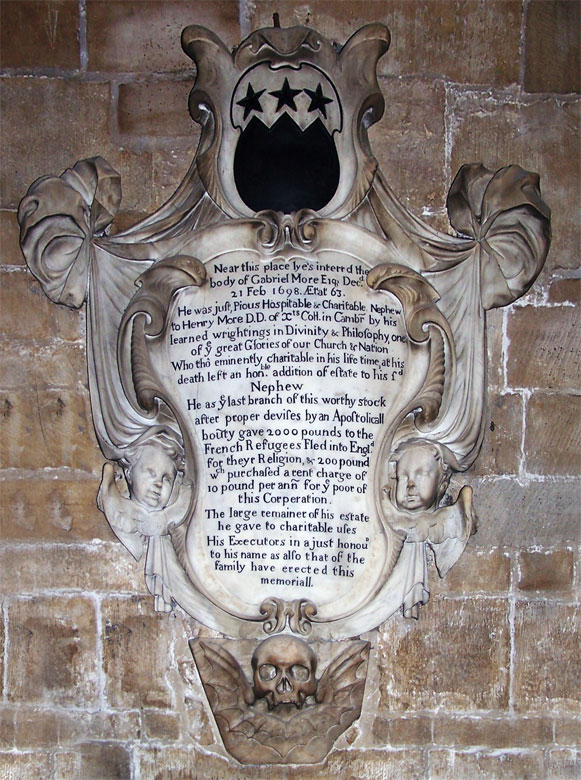 Near this place lye's interr'd the
body of Gabriel More Esqr Decd
21 Feb 1698. Ætat 63.
He was juſt, Pious Hospitable & Charitable Nephew
to Henry More D.D. of Xts Coll. in Cambr by his
learned wrightings in Divinity & Philoſophy, one
of ye great Glories of our Church & Nation
Who tho eminently charitable in his life time, at his
death left an honble addition of eſtate to his sd
Nephew
He as ye last branch of this worthy stock
after proper deviſes by an Apoſtolicall
boūty gave 2000 pounds to the
French Refugees Fled into Engld
for theyr Religion, & 200 pound
wch purchaſed a rent charge of
10 pound per añ for ye poor of
this Corperation.
The large remainer of his estate
he gave to charitable uſes
His Executors in a just honour
to his name as alſo that of the
family have erected this
memoriall.